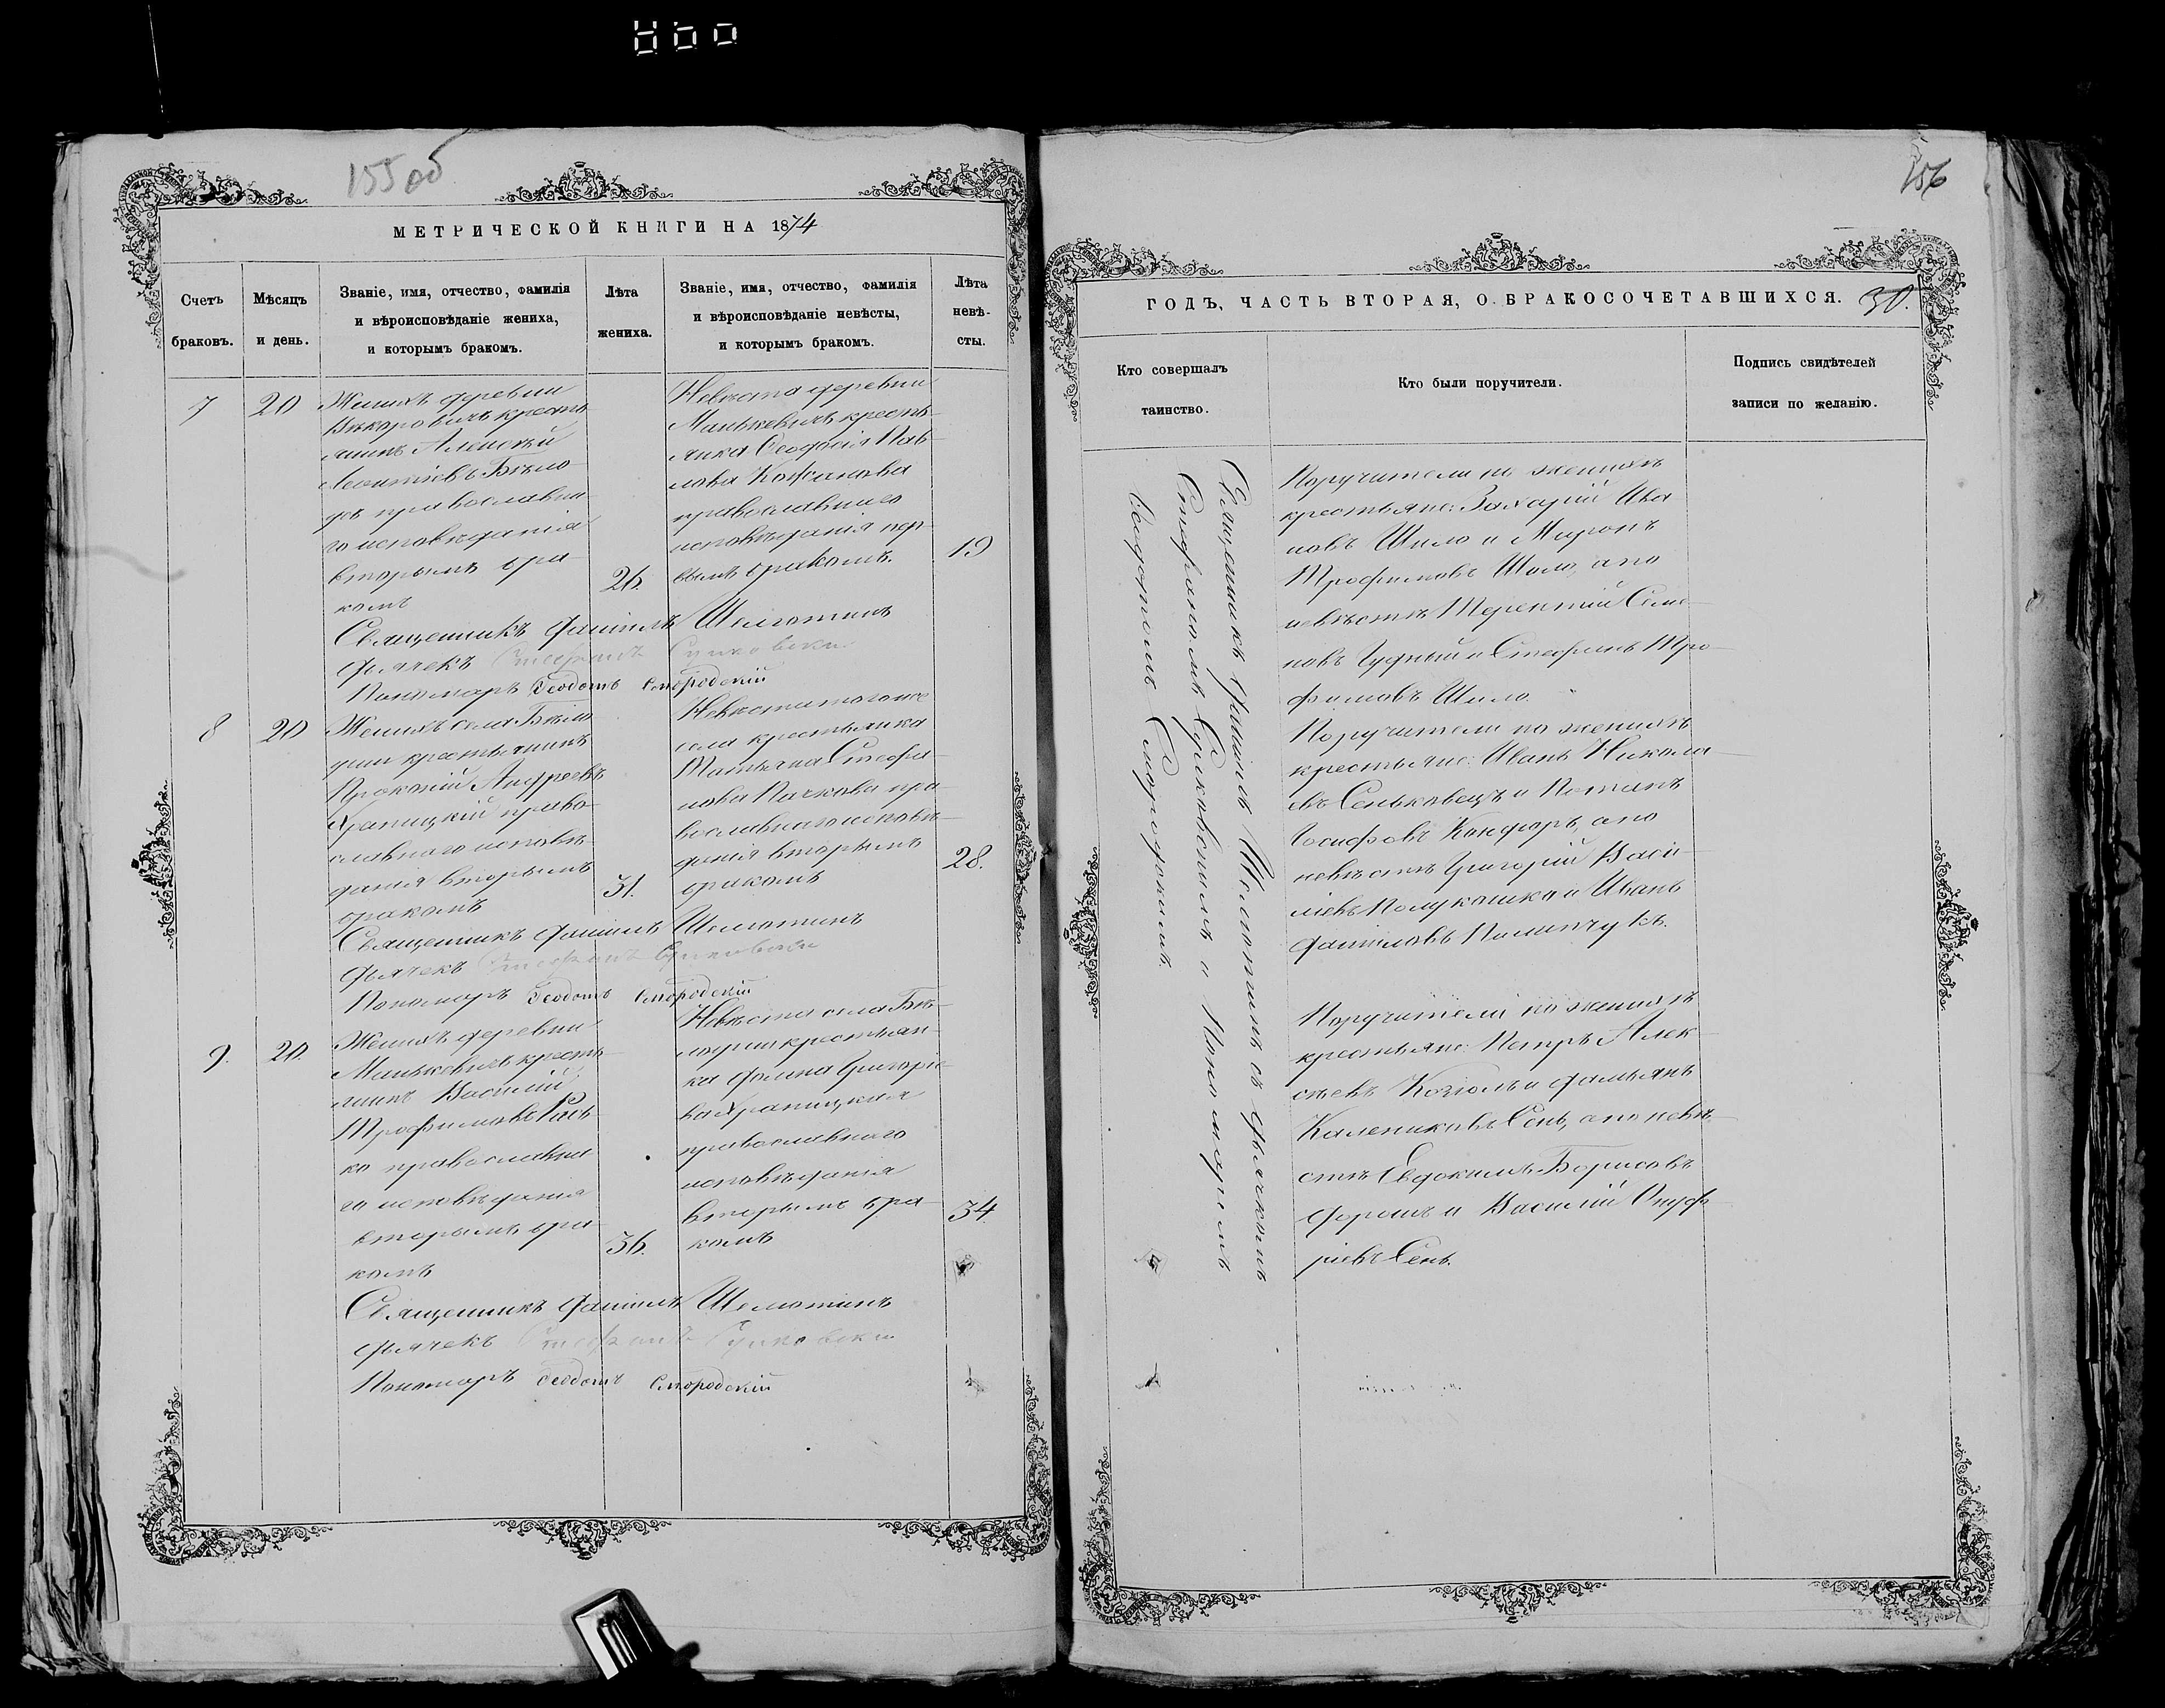 155 об
МЕТРИЧЕСКОЙ КНИГИ НА 1874
Счетъ
браковъ.
Мѣсяцъ
и день.
Званіе, имя, отчество, фамилія
и вѣроисповѣданіе жениха,
и которымъ бракомъ.
Лѣта
жениха.
Званіе, имя, отчество, фамилія
и вѣроисповѣданіе невѣсты,
и которымъ бракомъ.
Лѣта
невѣ-
сты.
7
20
Женихъ деревни
крестья
нинъ Алексѣй
Леонтіевъ Бѣло
православна
го исповѣданія
вторымъ бра-
комъ
26.
Невѣста деревни
Миньковичъ кресть-
янка Ѳеодосія Пав-
лова Кожанова
православнаго
исповѣданія пер-
вымъ бракомъ.
19
Священникъ Даніилъ Шелютинъ
Дьячекъ Стефанъ
Пономарь Ѳеодотъ Смородскій
8
20
Женихъ села Бѣло
уши крестьянинъ
Прокопій Андреевъ
Храпицкій право-
славнаго исповѣ-
данія вторымъ
бракомъ
31.
Невѣста тогоже
села крестьянка
Татьяна Стефа-
нова Пачкова пра-
вославнаго исповѣ-
данія вторымъ
бракомъ
28.
Священникъ Даніилъ Шелютинъ
Дьячекъ Стефанъ
Пономарь Ѳеодотъ Смородскій
9.
20.
Женихъ деревни
Миньковичъ кресть-
нинъ Василій
Трофимовъ
ко православна
го исповѣданія
вторымъ бра-
комъ
36.
Невѣста села Бѣ-
лоуши крестьян-
ка Домна Григорье
ва Храпицкая
православнаго
исповѣданія
вторымъ бра-
комъ
34.
Священникъ Даніилъ Шелютинъ
Дьячекъ Стефанъ
Пономарь Ѳеодотъ Смородскій
156
ГОДЪ, ЧАСТЬ ВТОРАЯ, О БРАКОСОЧЕТАВШИХСЯ. 30.
Кто совершалъ
таинство.
Кто были поручители.
Подпись свидѣтелей
записи по желанію.
Священникъ Даніилъ Шелютинъ съ дьячкомъ
Стефаномъ и Пономаремъ
Ѳеодотомъ Смородскимъ.
Поручители по женихѣ
крестьяне: Захарій Ива
новъ Шило и Миронъ
Трофимовъ Шило, а по
невѣстѣ Терентій Семе-
новъ Чудный и Стефанъ Тро-
фимовъ Шило.
Поручители по женихѣ
крестьяне: Иванъ Никола-
евъ Сеньковецъ и Потапъ
Іосифовъ Кондюръ, а по
невѣстѣ Григорій Васи-
ліевъ Полукошко и Иванъ
Даніиловъ Полипчукъ.
Поручители по женихѣ
крестьяне: Петръ Алек-
сѣевъ Козюль и Дамьянъ
Калениковъ Сень, а по невѣ-
стѣ Евдокимъ Борисовъ
Дорошъ и Василій Онуф-
ріевъ Сень.